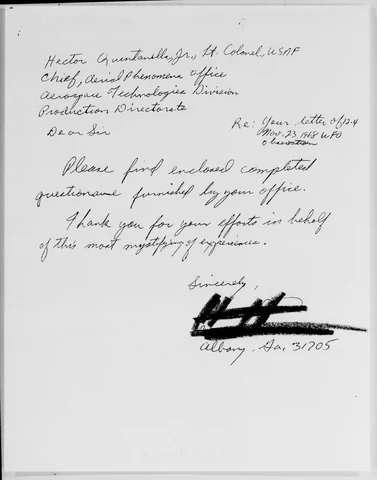 Hector Quintanella, Jr., Lt. Colonel, USAF
Chief, Aerial Phenomena Office
Aerospace Technologies Division
Production Directorate
Dear Sir
Re: Your letter of 12-4
Nov. 23, 1968 UFO
Observation
Please find enclosed completed
questionaire furnished by your office.
Thank you for your efforts in behalf
of this most mystifying of experiences.
Sincerely,
Albany, Ga. 31705